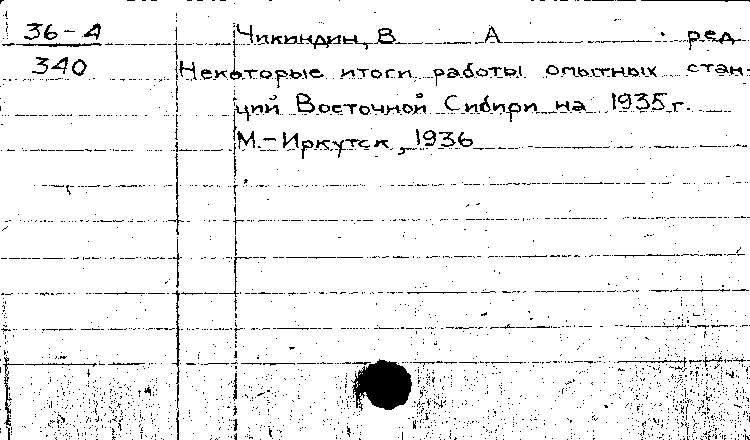 36-4 Чикиндин, В А ред
340 Некоторые итоги работы опытных стан-
ций Восточной Сибири на 1935 г.
М.-Иркутск, 1936